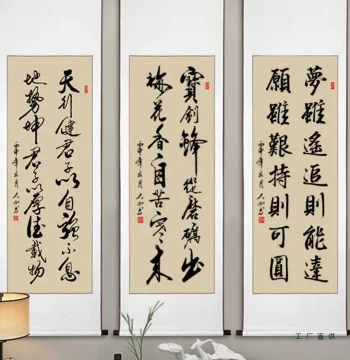 夢雖遙追則能達
願雖艱持則可圓
寶劍鋒從磨礪出
梅花香自苦寒來
天行健君子以自強不息
地勢坤君子以厚德載物
工厂直供